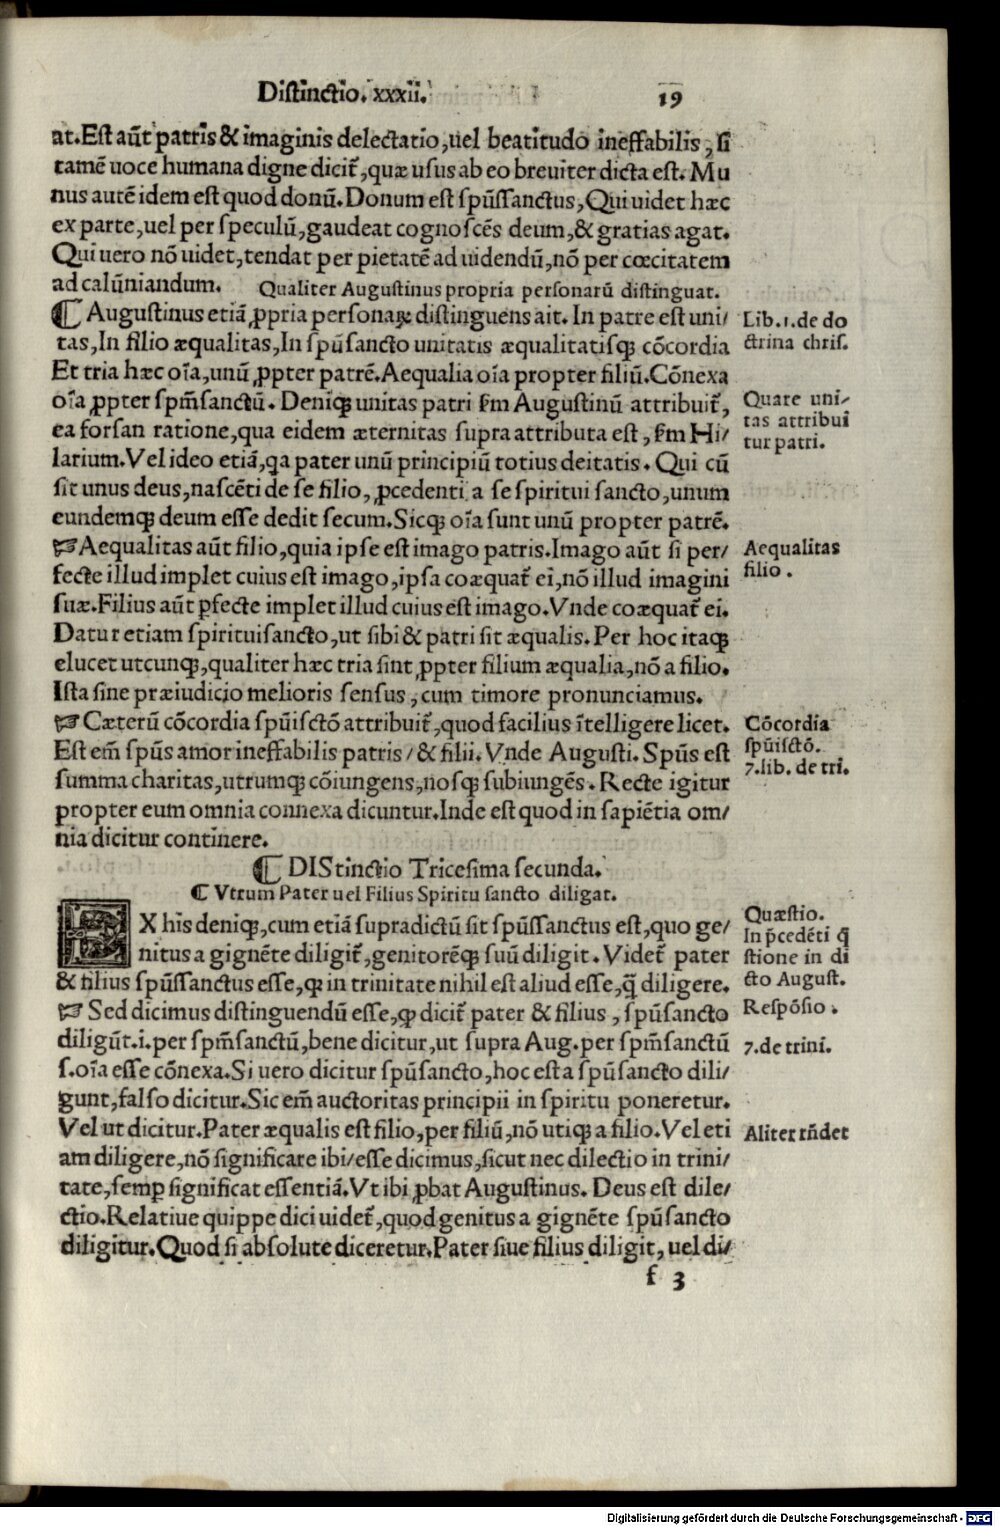 Distinctio. xxxii. 19
at. Est aūt patris & imaginis delectatio, uel beatitudo ineffabilis, si
tamē uoce humana digne dicit᷑, quæ usus ab eo breuiter dicta est. Mu
nus autē idem est quod donū. Donum est spūssanctus, Qui uidet hæc
ex parte, uel per speculū, gaudeat cognoscēs deum, & gratias agat.
Qui uero nō uidet, tendat per pietatē ad uidendū, nō per cœcitatem
ad calūniandum. Qualiter Augustinus propria personarū distinguat.
¶ Augustinus etiā ꝓpria personaꝝ distinguens ait. In patre est uni/
tas, In filio æqualitas, In spūsancto unitatis æqualitatisq̧ cōcordia
Et tria hæc oīa, unū ꝓpter patrē. Aequalia oīa propter filiū. Cōnexa
oīa ꝓpter spm̄sanctū. Deniq̧ unitas patri ẜm Augustinū attribuit᷑,
ea forsan ratione, qua eidem æternitas supra attributa est, ẜm Hi/
larium. Vel ideo etiā, qa pater unū principiū totius deitatis. Qui cū
sit unus deus, nascēti de se filio, ꝓcedenti a se spiritui sancto, unum
eundemq̧ deum esse dedit secum. Sicq̧ oīa sunt unū propter patrē.
☞ Aequalitas aūt filio, quia ipse est imago patris. Imago aūt si per/
fecte illud implet cuius est imago, ipsa coæquat᷑ ei, nō illud imagini
suæ. Filius aūt ꝑfecte implet illud cuius est imago. Vnde coæquat᷑ ei.
Datur etiam spirituisancto, ut sibi & patri sit æqualis. Per hoc itaq̧
elucet utcunq̧, qualiter hæc tria sint ꝓpter filium æqualia, nō a filio.
Ista sine præiudicio melioris sensus, cum timore pronunciamus.
☞ Cæterū cōcordia spūisctō attribuit᷑, quod facilius ītelligere licet.
Est em̄ spūs amor ineffabilis patris/ & filii. Vnde Augusti. Spūs est
summa charitas, utrumq̧ cōiungens, nosq̧ subiungēs. Recte igitur
propter eum omnia connexa dicuntur. Inde est quod in sapiētia om/
nia dicitur continere.
¶ DIStinctio Tricesima secunda.
¶ Vtrum Pater uel Filius Spiritu sancto diligat.
EX his deniq̧, cum etiā supradictū sit spūssanctus est, quo ge/
nitus a gignēte diligit᷑, genitorēq̧ suū diligit. Videt᷑ pater
& filius spūssanctus esse, ꝙ in trinitate nihil est aliud esse, q̄ diligere.
☞ Sed dicimus distinguendū esse, ꝙ dicit᷑ pater & filius, spūsancto
diligūt. i. per spm̄sanctū, bene dicitur, ut supra Aug. per spm̄sanctū
s. oīa esse cōnexa. Si uero dicitur spūsancto, hoc est a spūsancto dili/
gunt, falso dicitur. Sic em̄ auctoritas principii in spiritu poneretur.
Vel ut dicitur. Pater æqualis est filio, per filiū, nō utiq̧ a filio. Vel eti
am diligere, nō significare ibi/ esse dicimus, sicut nec dilectio in trini/
tate, semꝑ significat essentiā. Vt ibi ꝓbat Augustinus. Deus est dile/
ctio. Relatiue quippe dici uidet᷑, quod genitus a gignēte spūsancto
diligitur. Quod si absolute diceretur. Pater siue filius diligit, uel di/
f 3
Lib. 1. de do
ctrina chris.
Quare uni/
tas attribui
tur patri.
Aequalitas
filio.
Cōcordia
spūisctō.
7. lib. de tri.
Quæstio.
In p̄cedēti q̄
stione in di
cto August.
Respōsio.
7. de trini.
Aliter rn̄det
Digitalisierung gefördert durch die Deutsche Forschungsgemeinschaft - DFG